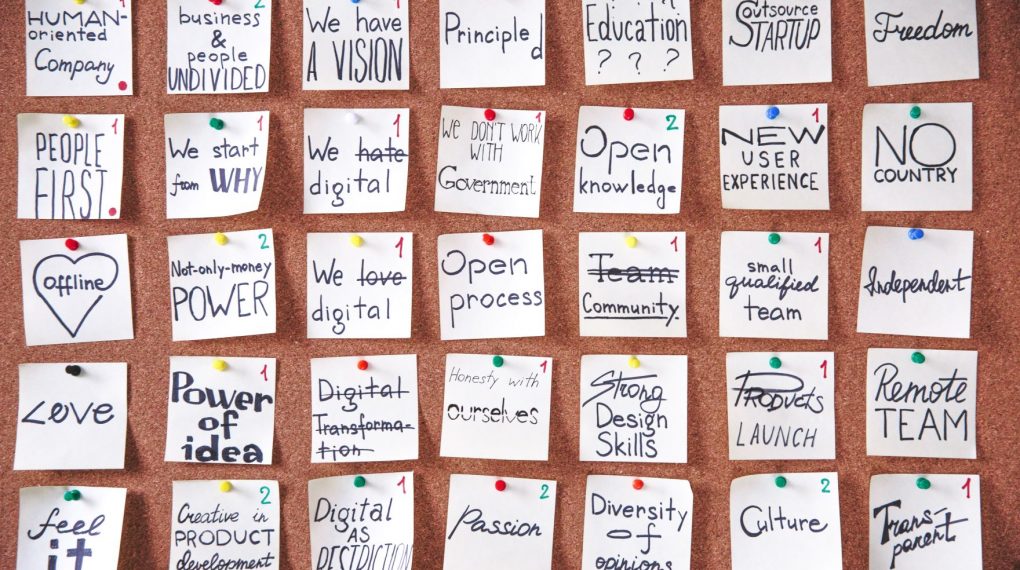 HUMAN-
oriented
Company.
2
business
&
people
UNDIVIDED
1
We have
A VISION
Principle
d
Education
? ? ?
Outsource
STARTUP
Freedom
1
PEOPLE
FIRST.
1
We start
from WHY
1
We hate
digital
1
We DON'T WORK
WITH
Government
2
Open
knowledge
1
NEW
USER
EXPERIENCE
NO
COUNTRY
offline
2
Not-only-money
POWER
1
We love
digital
Open
process
1
Team
Community
1
small
qualified
team
Independent
Love
1
Power
of
idea
Digital
Transforma-
tion
1
Honesty with
ourselves
Strong
Design
Skills
1
PRODUCTS
LAUNCH
Remote
TEAM
feel
it
2
Creative in
PRODUCT
development
1
Digital
AS
DESTRICTION
2
Passion
Diversity
of
opinions
2
Culture
1
Trans-
parent